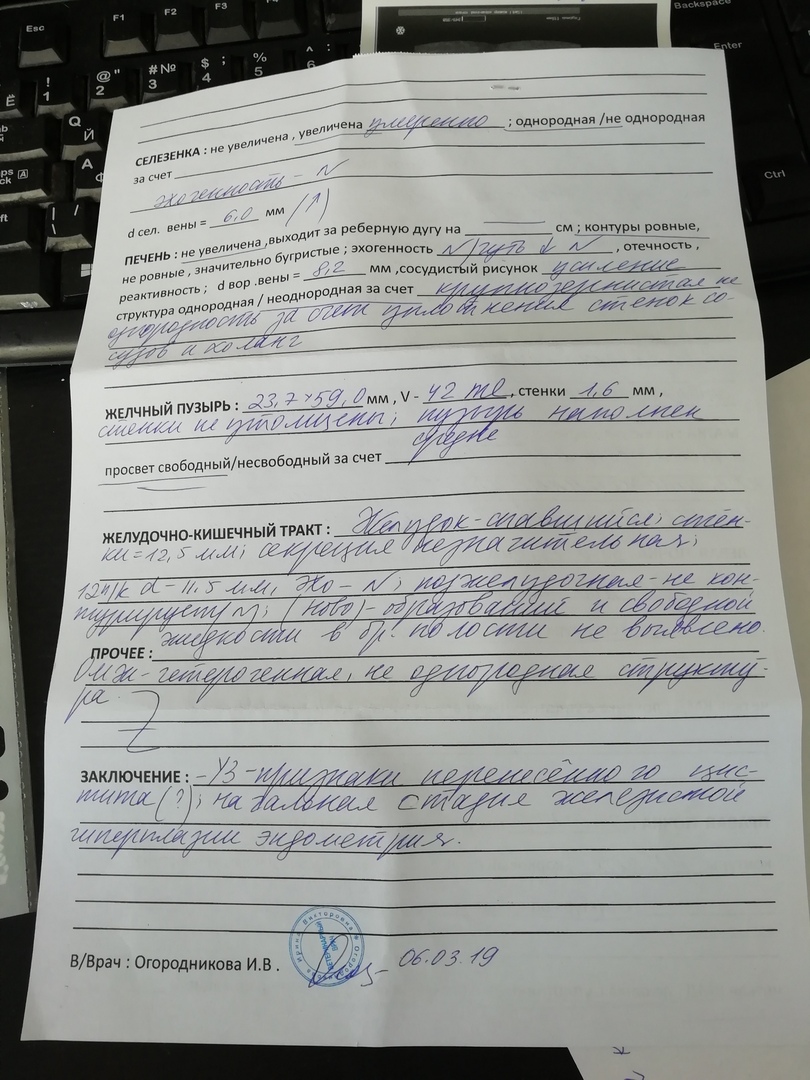 Backspace
Enter
Ctrl
Esc
F1
F2
F3
F4
СЕЛЕЗЕНКА : не увеличена , увеличена умеренно ; однородная /не однородная
за счет
эхогенность – N
d сел. вены = 6,0 мм (↑)
ПЕЧЕНЬ : не увеличена ,выходит за реберную дугу на см ; контуры ровные,
не ровные , значительно бугристые ; эхогенность N/чуть ↓ N , отечность ,
реактивность ; d вор .вены = 8,2 мм ,сосудистый рисунок усиление
структура однородная / неоднородная за счет крупнозернистая не
однородность за счет уплотнения стенок со-
судов и холанг
ЖЕЛЧНЫЙ ПУЗЫРЬ : 23,7×59,0 мм , V - 42 ml , стенки 1,6 мм ,
стенки не утолщены; пузырь наполнен
средне
просвет свободный/несвободный за счет
ЖЕЛУДОЧНО-КИШЕЧНЫЙ ТРАКТ : Желудок-спавшийся; стен-
ки=12,5 мм; секреция незначительная;
12п/к d – 11,5 мм, Эхо – N; поджелудочная-не кон-
турируется; (Ново)-образований и свободной
жидкости в бр. полости не выявлено.
ПРОЧЕЕ :
гетерогенная, не однородная структу-
ра.
ЗАКЛЮЧЕНИЕ : -УЗ-признаки перенесённого цис-
тита(?); начальная стадия железистой
гиперплазии эндометрия.
В/Врач : Огородникова И.В .
06.03.19